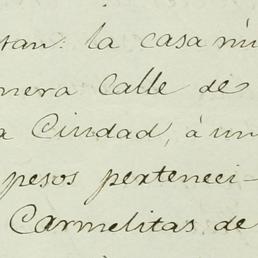 tan: la casa nú
mera Calle de
a Ciudad, á un
pesos perteneci-
Carmelitas de